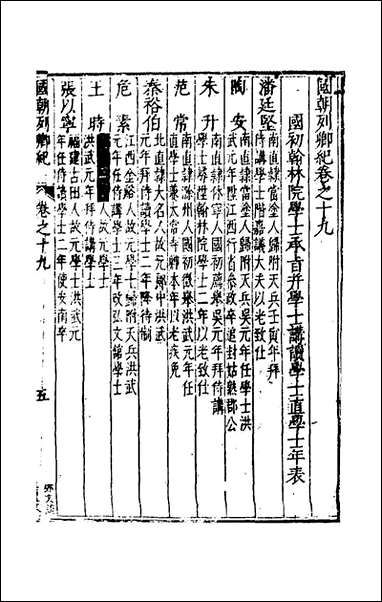 國朝列卿紀卷之十九
國初翰林院學士承旨并學士講讀學士直學士年表
潘廷堅
南直隸當塗人歸附天兵壬寅年拜
侍講學士階嘉議大夫以老致仕
陶安
南直隸當塗人歸附天兵吳元年任學士洪
武元年陞江西行省參政卒追封姑孰郡公
朱升
南直隸休寧人國初薦舉吳元年拜侍講
學士尋陞翰林院學士二年以老致仕
范常
南直隸滁州人國初徵舉洪武元年任
直學士兼太常寺卿本年以老疾免
秦裕伯
北直隸大名人故元鄉中洪武
元年拜侍讀學士二年降待制
危素
江西金谿人故元學士歸附天兵洪武
元年任侍講學士三年改弘文館學士
王時
人故元學士
洪武元年拜侍講學士
張以寧
福建古田人故元學士洪武元
年任侍讀學士二年使安南卒
國朝列卿紀
卷之十九
五